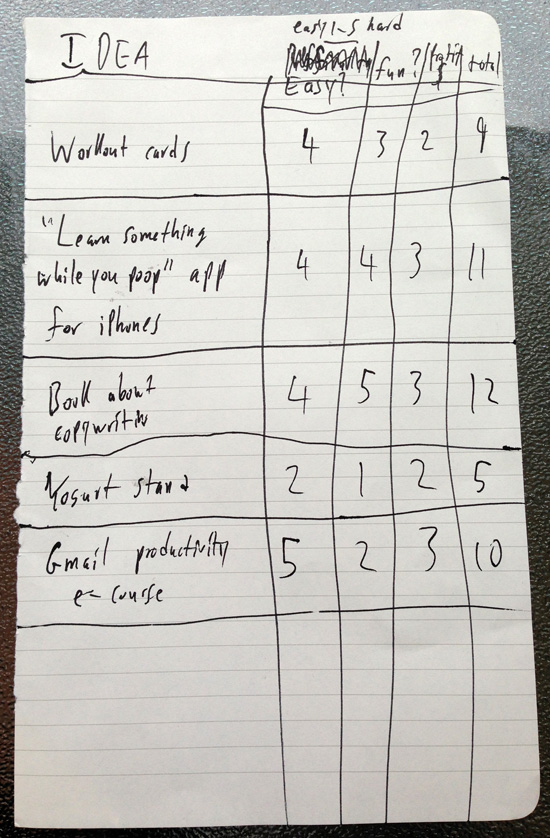 easy 1-5 hard
IDEA Easy? fun? profit $ total
Workout cards 4 3 2 9
"Learn something
while you poop" app 4 4 3 11
for iphones
Book about 4 5 3 12
copywritin
Yogurt stand 2 1 2 5
Gmail productivity 5 2 3 10
e-course